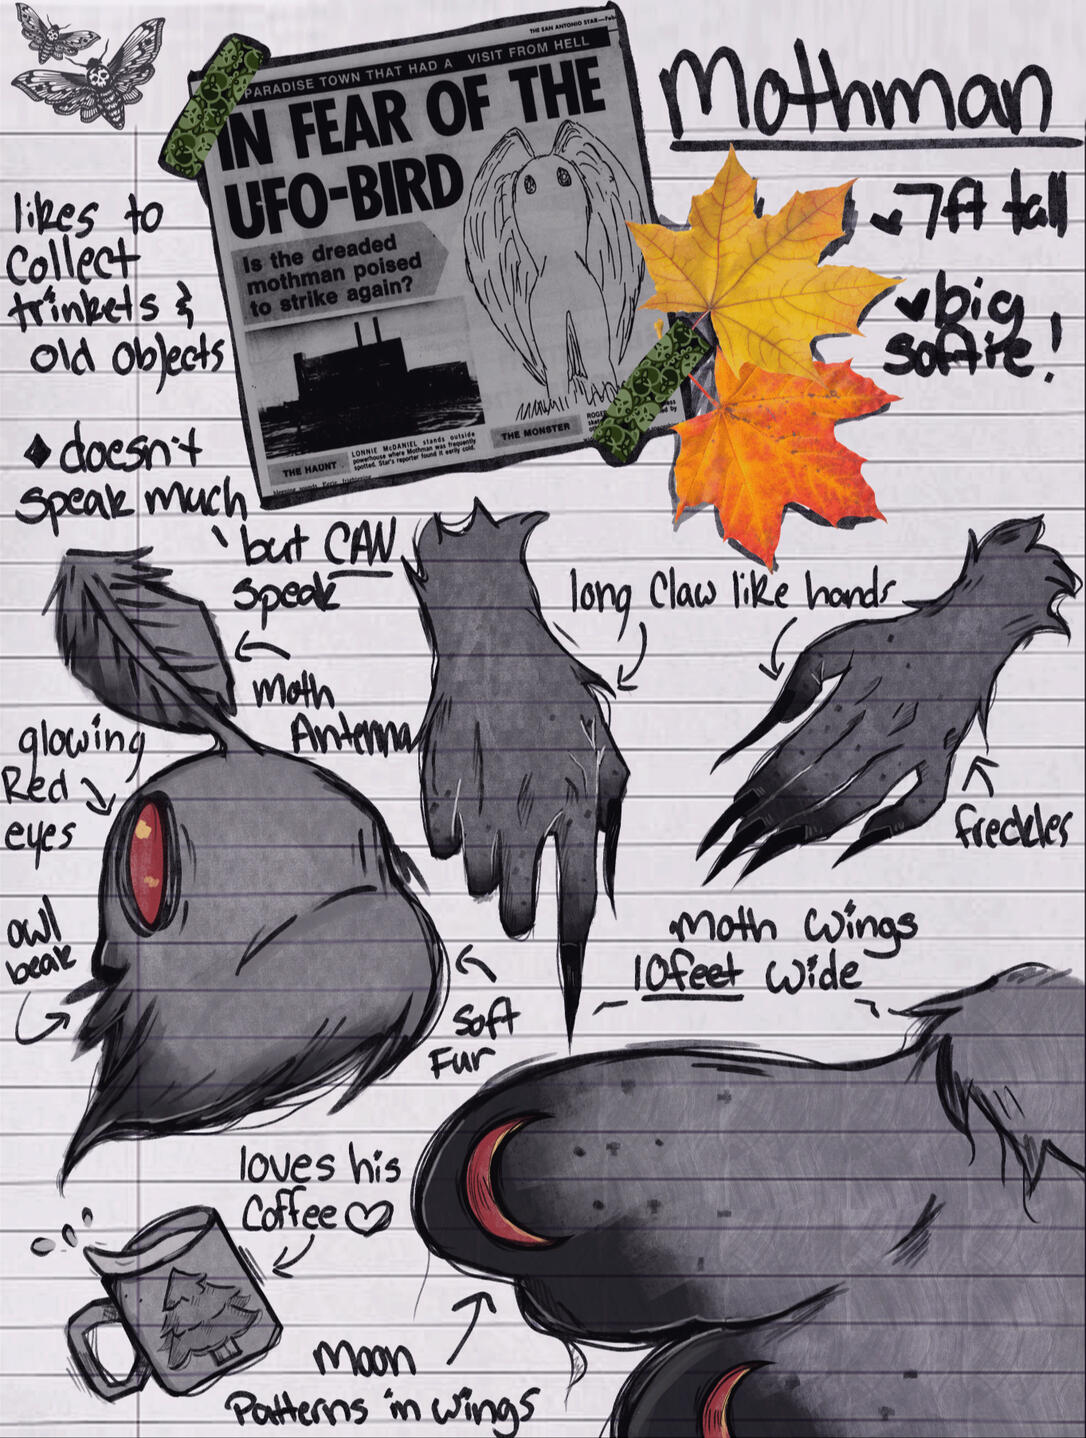 THE SAN ANTONIO STAR—Feb
PARADISE TOWN THAT HAD A VISIT FROM HELL
IN FEAR OF THE
UFO-BIRD
Is the dreaded
mothman poised
to strike again?
THE HAUNT
LONNIE McDANIEL stands outside
powerhouse where Mothman was frequently
spotted. Star's reporter found it eerily cold.
THE MONSTER
Mothman
7ft tall
big
softie!
likes to
collect
trinkets &
old objects
doesn't
speak much
but CAN
speak
Moth
Antenna
long Claw like hands
freckles
glowing
Red
eyes
owl
beak
Soft
Fur
Moth Wings
10feet wide
loves his
Coffee ♡
Moon
Patterns in wings